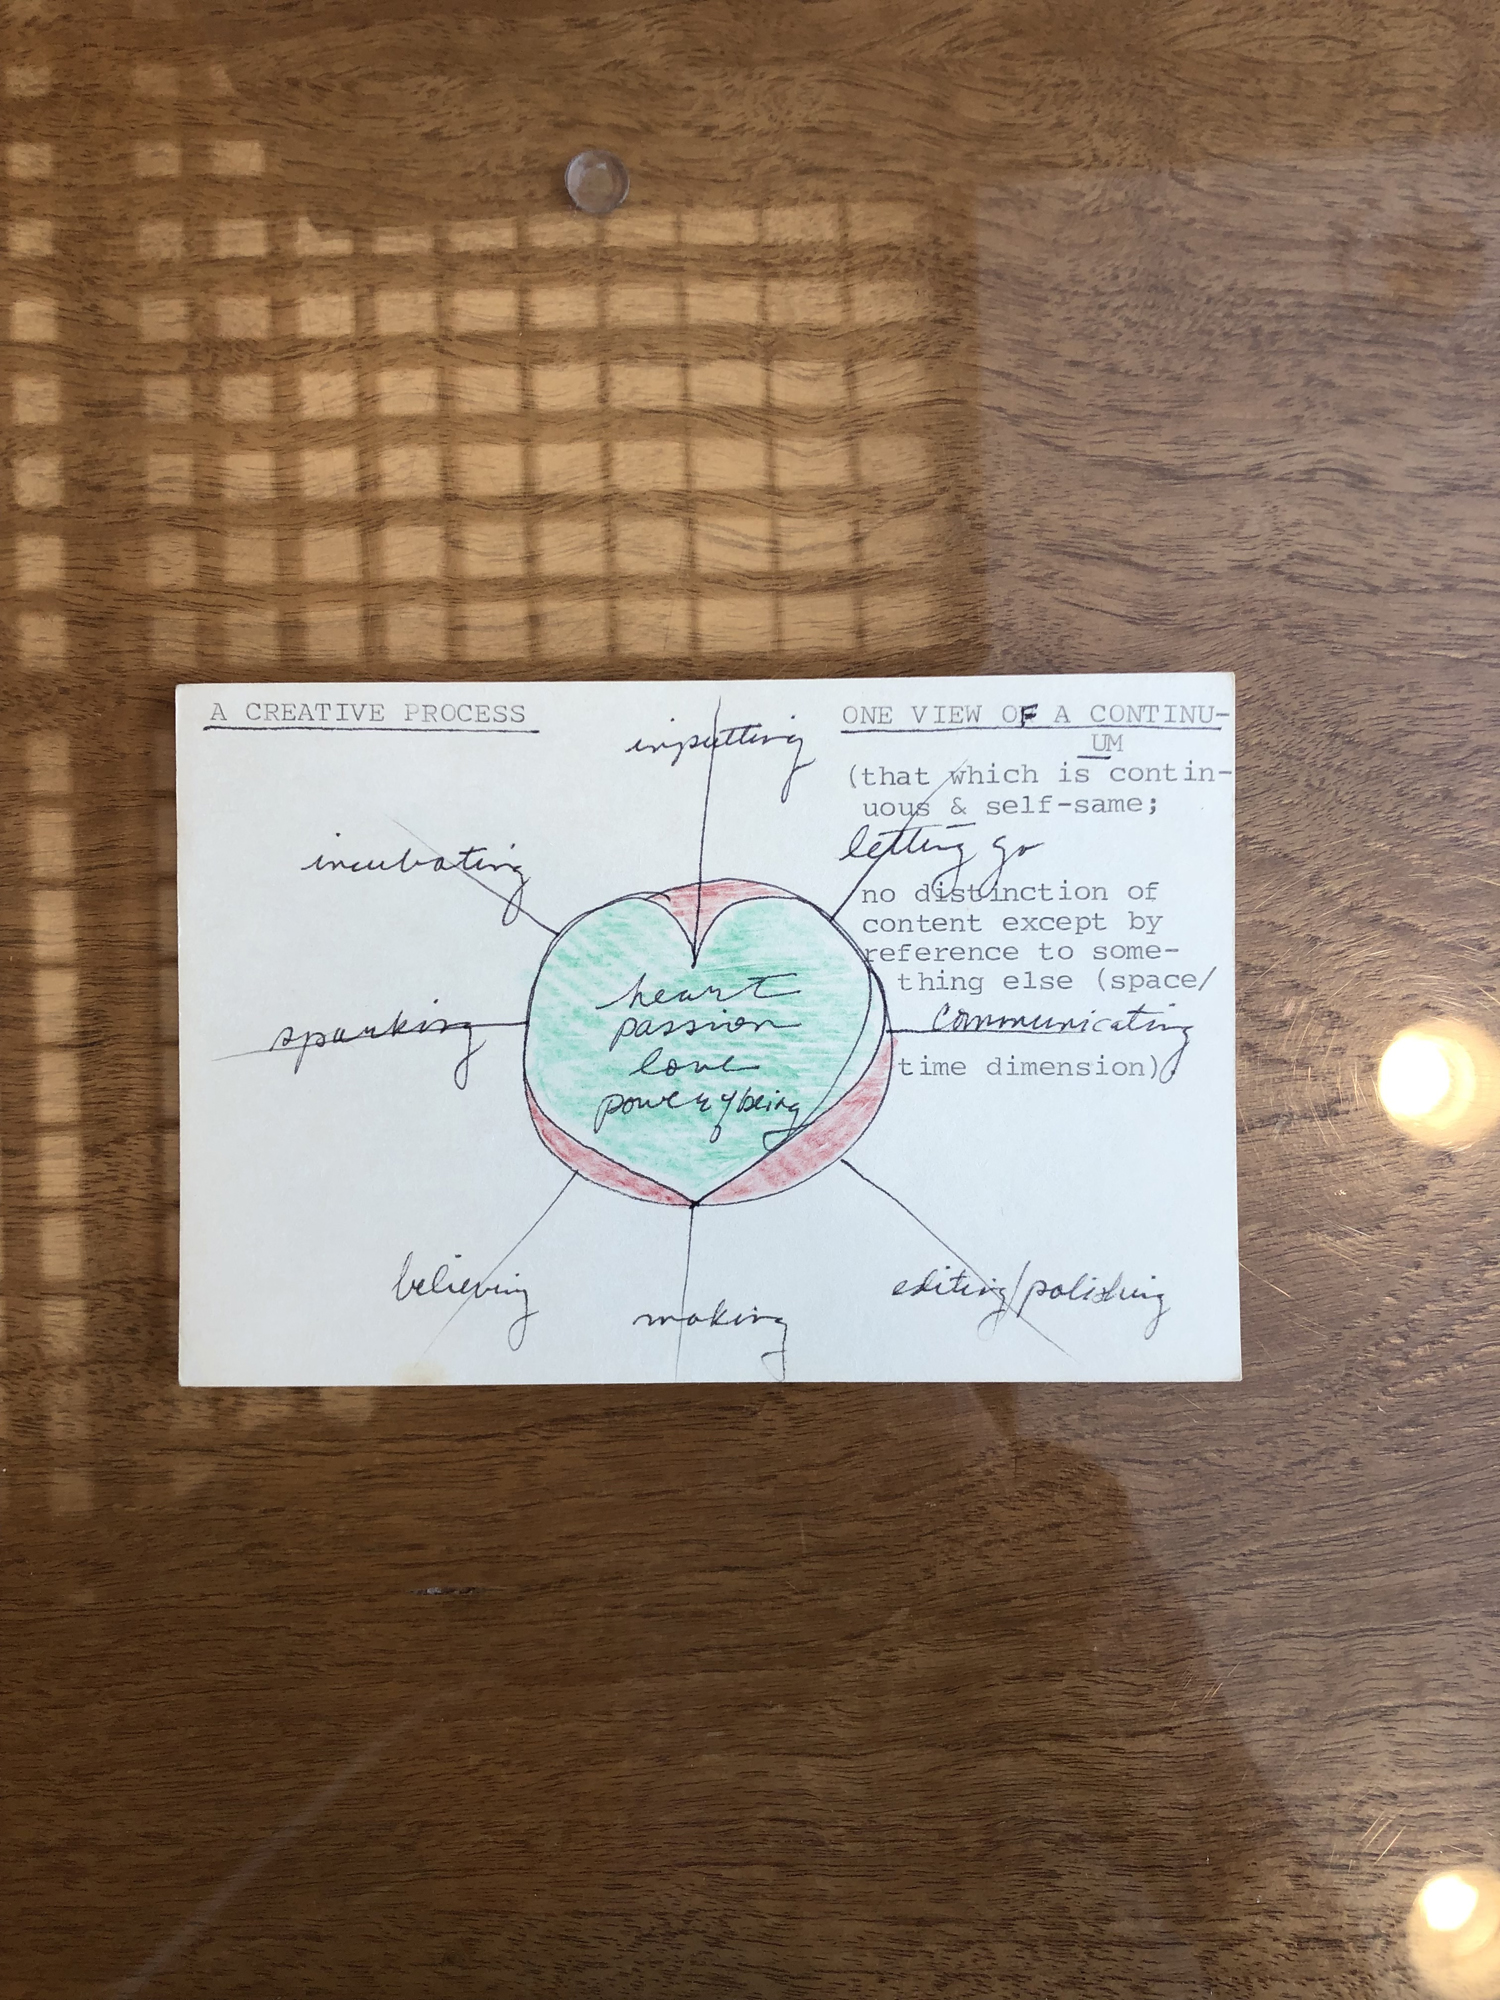 A CREATIVE PROCESS
ONE VIEW OF A CONTINU-
UM
(that which is contin-
uous & self-same;
no distinction of
content except by
reference to some-
thing else (space/
time dimension)
inputting
letting go
communicating
editing/polishing
making
believing
sparking
incubating
heart
passion
love
power of being